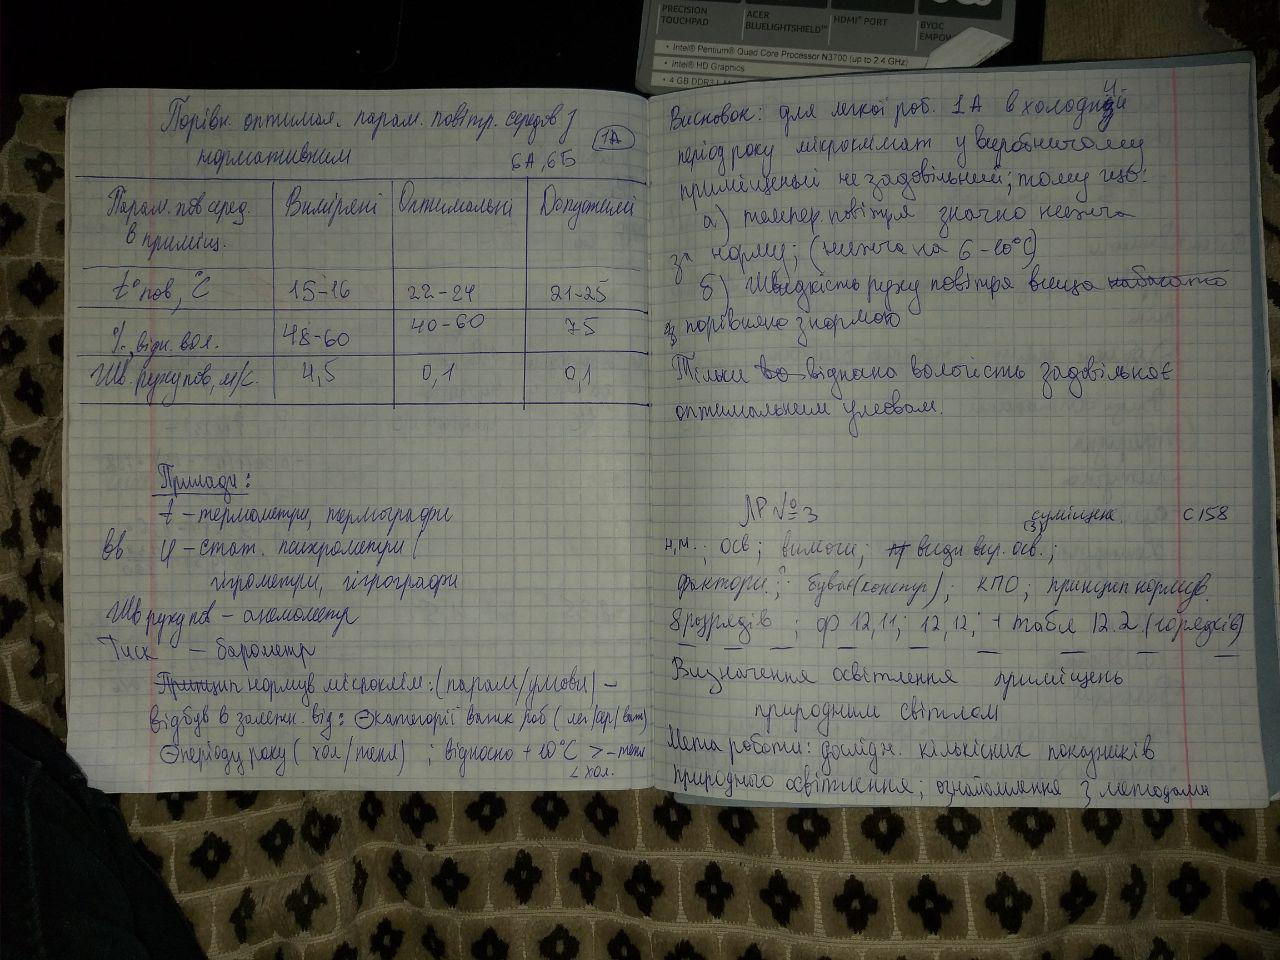 PRECISION TOUCHPAD
ACER BLUELIGHTSHIELD™
HDMI® PORT
BYOC
• Intel® Pentium® Quad Core Processor N3700 (up to 2.4 GHz)
• Intel® HD Graphics
• 4 GB DDR3 L
Порівн. оптимал. парам. повітр. середов з
нормативним
1А
6А, 6Б
Парам. пов серед. в приміщ.
Виміряні
Оптимальні
Допустимі
t° пов, °C
15-16
22-24
21-25
%, відн. вол.
48-60
40-60
75
Шв. руху пов, м/с.
4,5
0,1
0,1
Прилади:
t – термометри, термографи
ВВ φ – стат. психрометри (
гігрометри, гігрографи
Шв руху пов – анемометр
Тиск – барометр
Принцип нормув мікроклім: (парам/умови) –
відбув в залежн. від: категорії важк роб (лег/сер/важ)
періоду року (хол/тепл) ; відносно + 10°C > – тепл
< хол.
Висновок: для легкої роб. 1А в холодний
період року мікроклімат у виробничому
приміщенні не задовільний; тому що:
а) темпер. повітря значно нижча
за норму; (нижча на 6-10°C)
б) Швидкість руху повітря вища набагато
порівняно з нормою
Тільки во відносна вологість задовільняє
оптимальним умовам.
ЛР № 3
суміщене
(3)
С 158
н,м.; осв; вимоги; види вир. осв.;
фактори.; будів (констр); КПО; принцип нормув.
8 розрядів ; ф 12,11; 12,12, + табл 12.2 (10 рядків)
Визначення освітлення приміщень
природним світлом
Мета роботи: дослідж. кількісних показників
природного освітлення; ознайомлення з методами